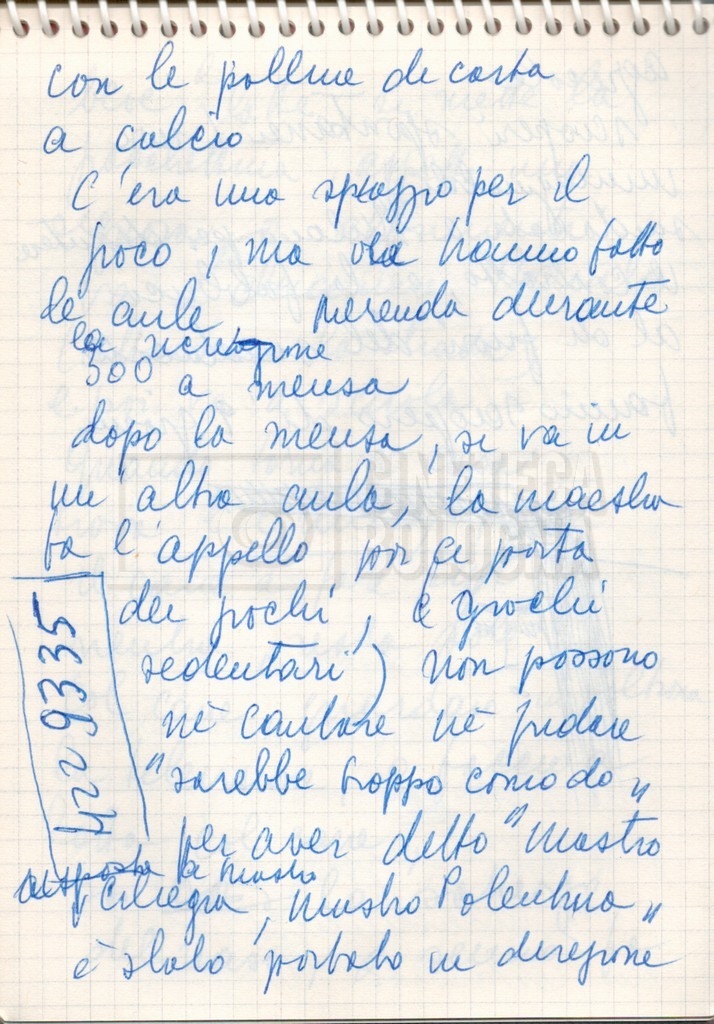 con le palline di carta
a calcio
C'era uno spazzo per il
gioco, ma ora hanno fatto
le aule merenda durante
la ricreazione
300 a mensa
dopo la mensa, si va in
un'altra aula, la maestra
fa l'appello poi ci porta
dei giochi, (giochi
sedentari) non possono
nè cantare nè gridare
"sarebbe troppo comodo"
per aver detto "mastro
risposta a mastro
Ciliegia, mastro Polentina"
è stato portato in direzione
4229335
CINETECA
BOLOGNA